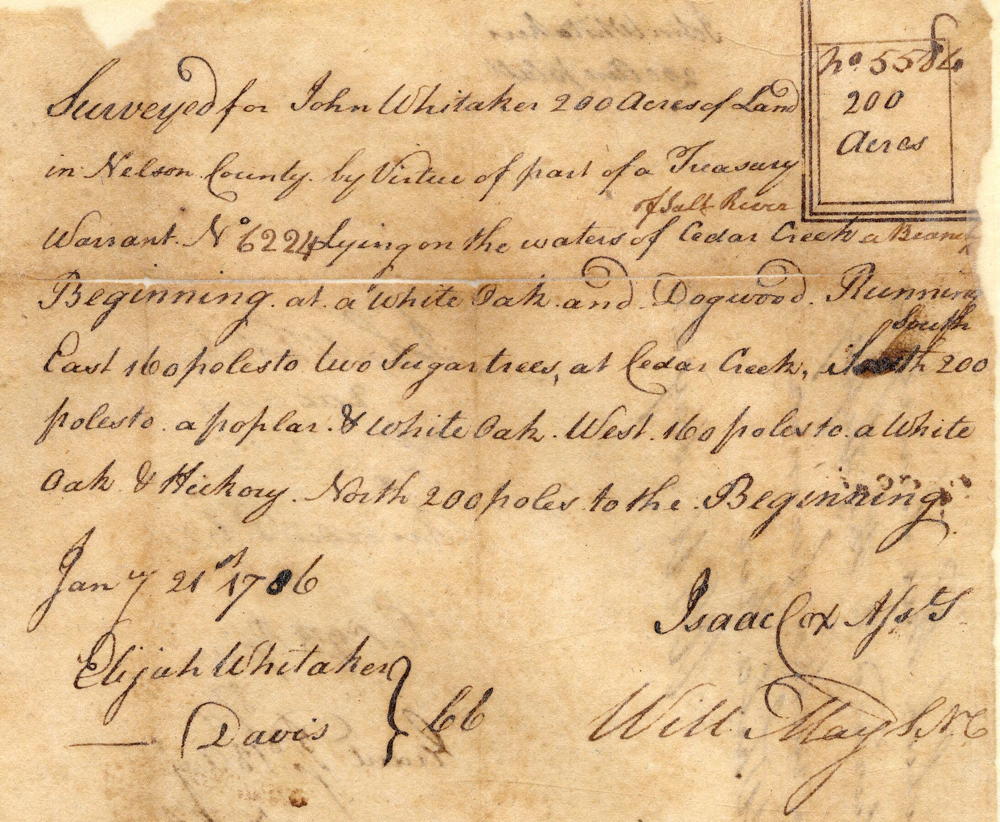 Surveyed for John Whitaker 200 Acres of Land
in Nelson County by Virtue of part of a Treasury
of Salt River
Warrant No 6224 Lying on the waters of Cedar Creek a Branch
Beginning at a White Oak and Dogwood Running
South
East 160 poles to two Sugartrees, at Cedar Creek, South 200
poles to a poplar & White Oak West 160 poles to a White
Oak & Hickory North 200 poles to the Beginning
Jany 21st 1786
Isaac Cox Asst S
Elijah Whitaker
Davis } CC
Will May S N C
no 5584
200
Acres